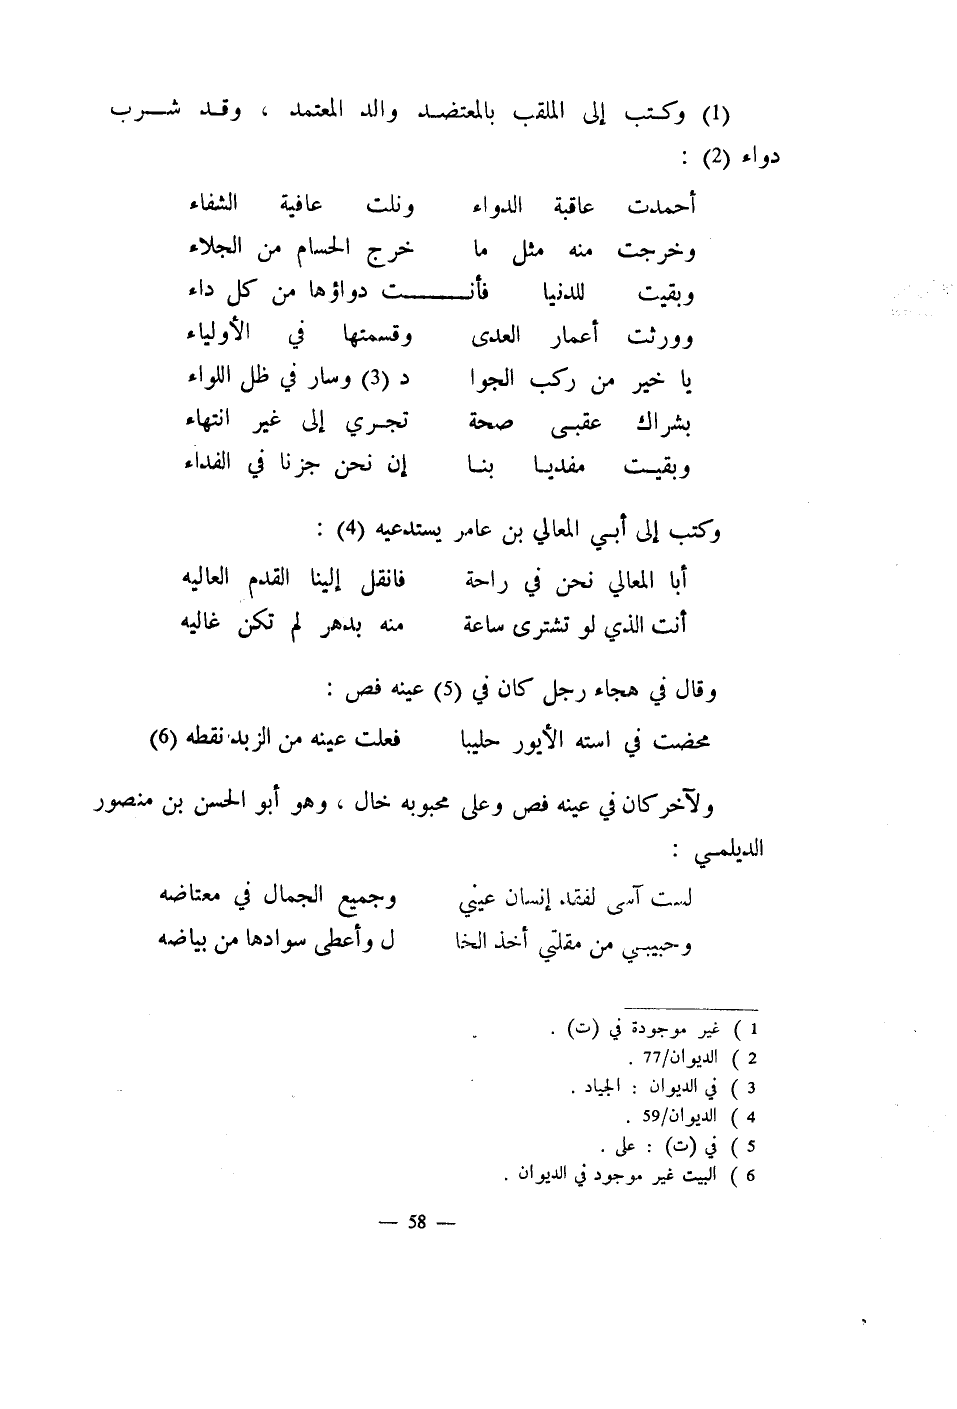 (1) وكتب إلى الملقب بالمعتضد والد المعتمد ، وقد شرب
دواء (2) :
أحمدت عاقبة الدواء ونلت عافية الشفاء
وخرجت منه مثل ما خرج الحسام من الجلاء
وبقيت للدنيا فأنت دواؤها من كل داء
وورثت أعمار العدى وقسمتها في الأولياء
يا خير من ركب الجوا د (3) وسار في ظل اللواء
بشراك عقبى صحة تجري إلى غير انتهاء
وبقيت مفديا بنا إن نحن جزنا في الفداء
وكتب إلى أبي المعالي بن عامر يستدعيه (4) :
أبا المعالي نحن في راحة فانقل إلينا القدم العاليه
أنت الذي لو تشترى ساعة منه بدهر لم تكن غاليه
وقال في هجاء رجل كان في (5) عينه فص :
مخضت في استه الأيور حليبا فعلت عينه من الزبد نقطه (6)
ولآخر كان في عينه فص وعلى محبوبه خال ، وهو أبو الحسن بن منصور
الديلمي :
لست آسى لفقد إنسان عيني وجميع الجمال في معتاضه
وحبيبي من مقلتي أخذ الخا ل وأعطى سوادها من بياضه
1 ) غير موجودة في (ت) .
2 ) الديوان/77 .
3 ) في الديوان : الجياد .
4 ) الديوان/59 .
5 ) في (ت) : على .
6 ) البيت غير موجود في الديوان .
— 58 —